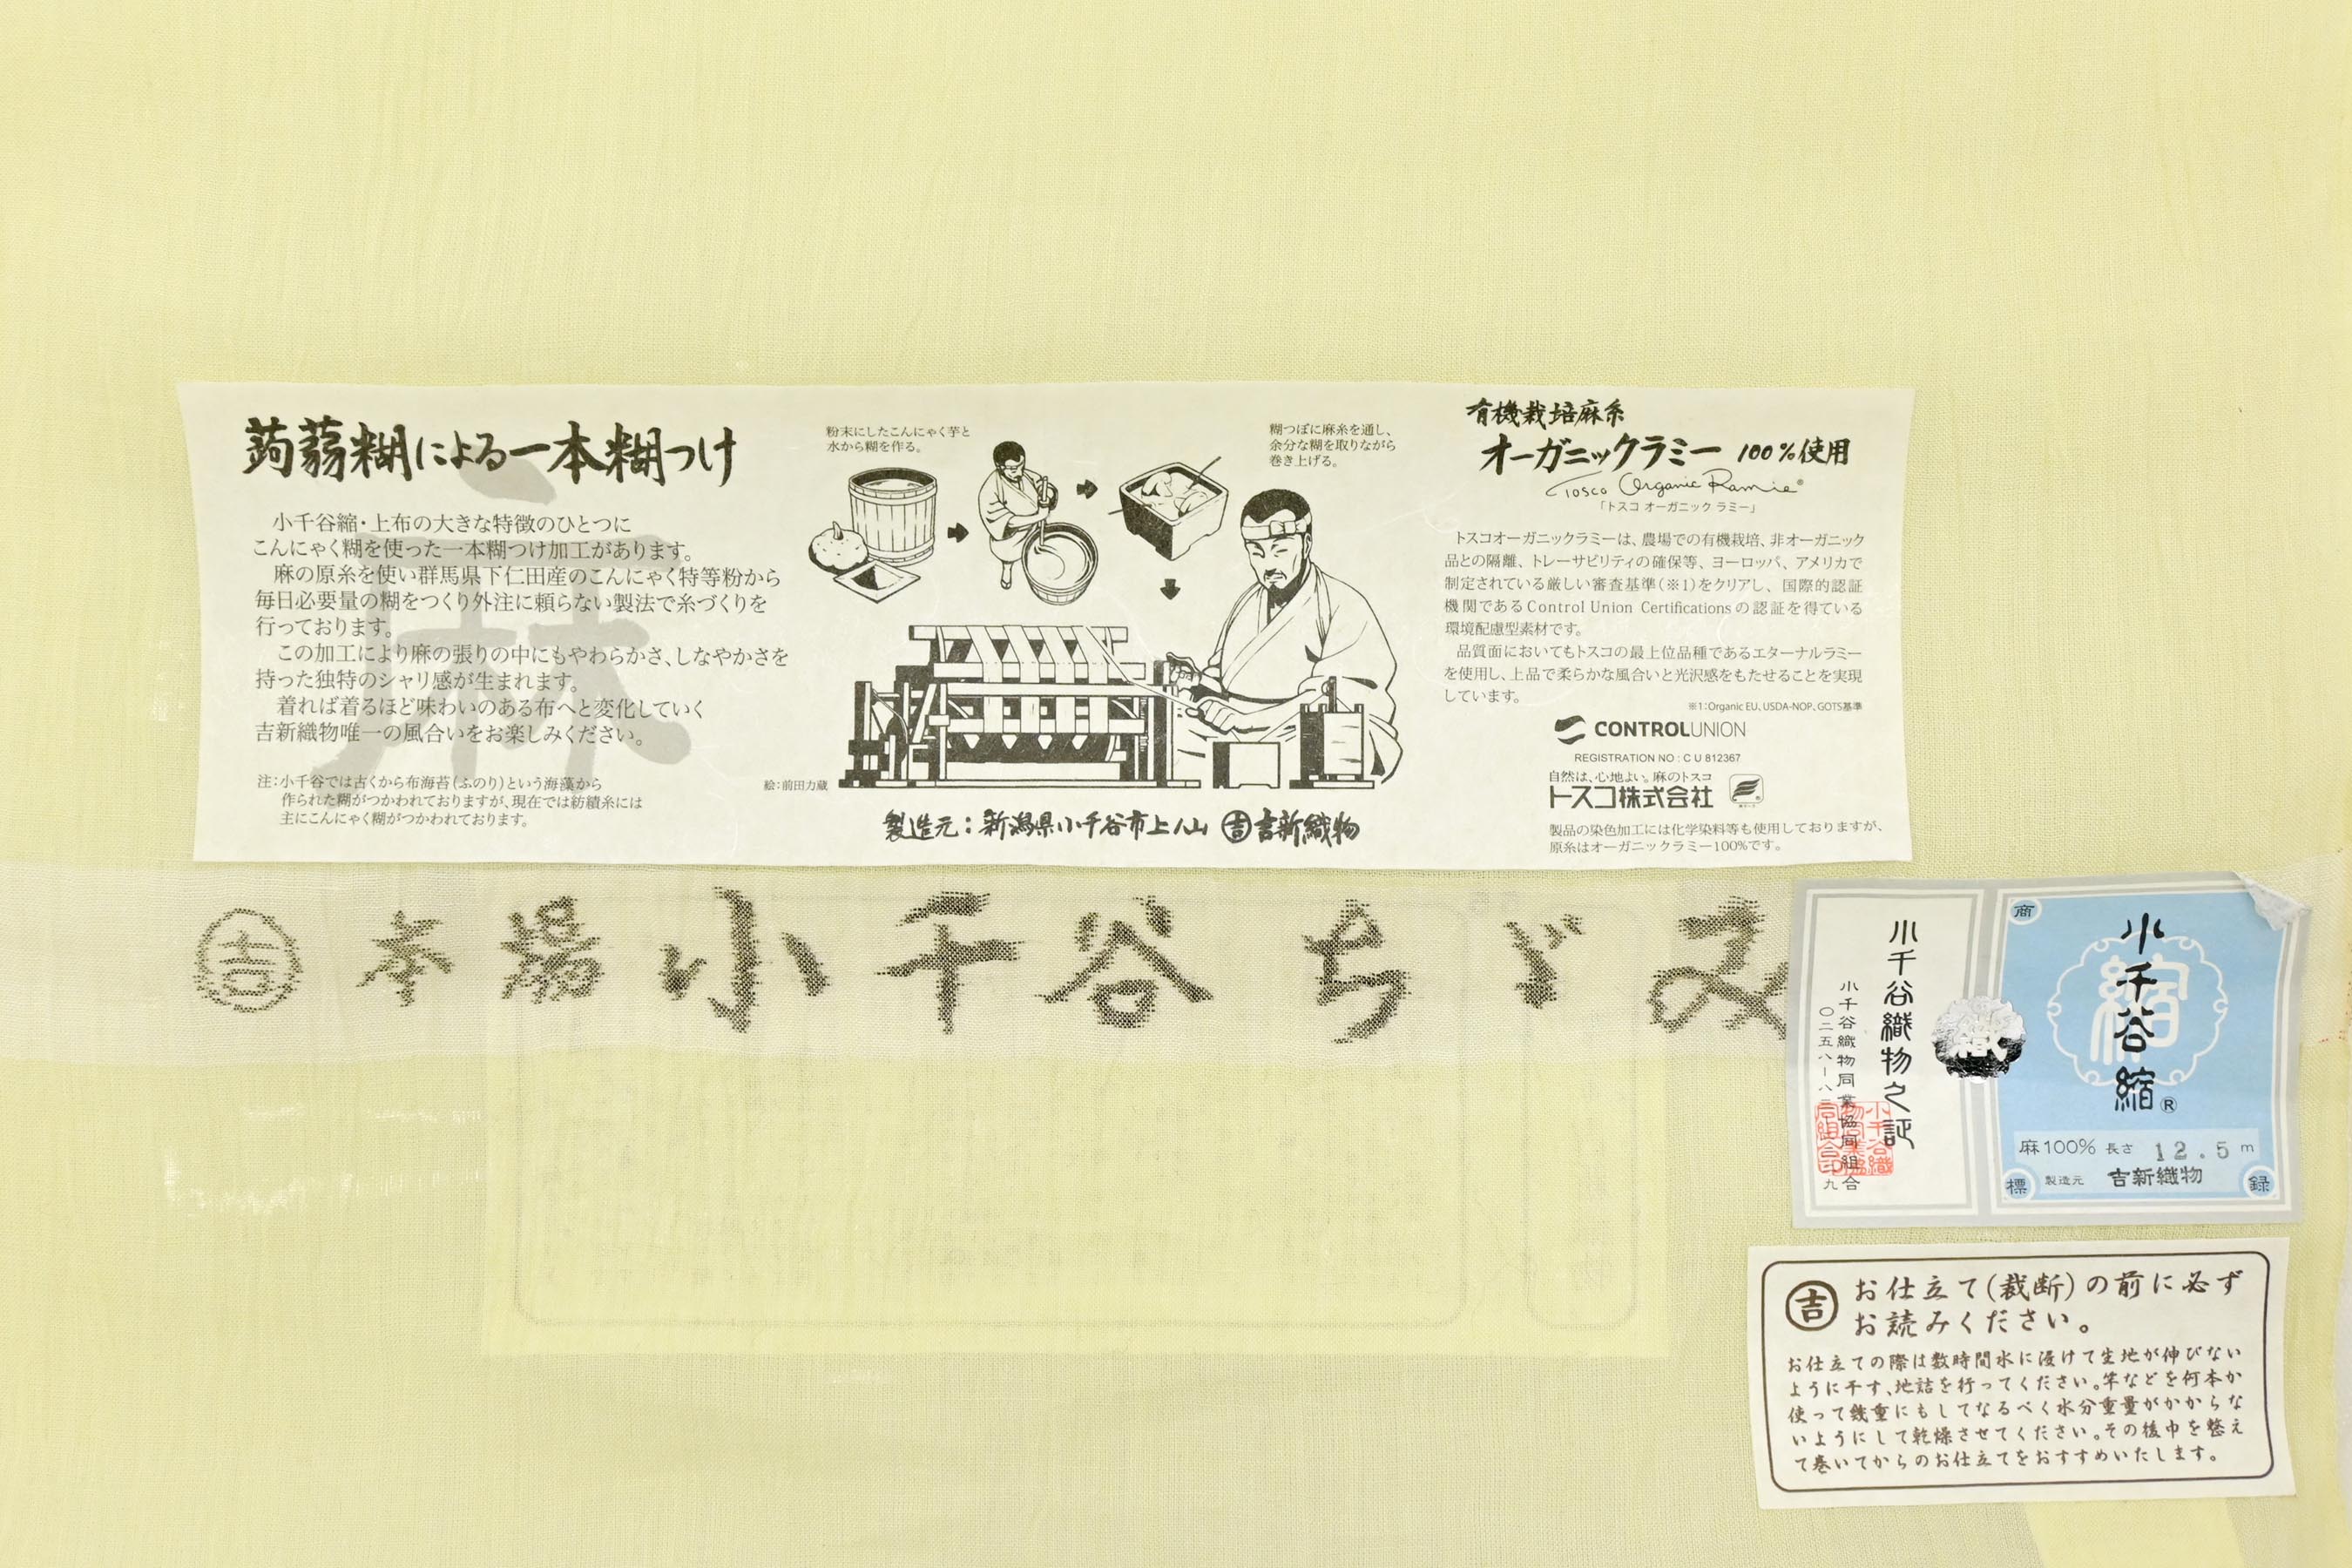 蒟蒻糊による一本糊つけ
小千谷縮・上布の大きな特徴のひとつに
こんにゃく糊を使った一本糊つけ加工があります。
麻の原糸を使い群馬県下仁田産のこんにゃく特等粉から
毎日必要量の糊をつくり外注に頼らない製法で糸づくりを
行っております。
この加工により麻の張りの中にもやわらかさ、しなやかさを
持った独特のシャリ感が生まれます。
着れば着るほど味わいのある布へと変化していく
吉新織物唯一の風合いをお楽しみください。
麻
注：小千谷では古くから布海苔（ふのり）という海藻から
作られた糊がつかわれておりますが、現在では紡績糸には
主にこんにゃく糊がつかわれております。
粉末にしたこんにゃく芋と
水から糊を作る。
糊つぼに麻糸を通し、
余分な糊を取りながら
巻き上げる。
絵：前田力蔵
製造元：新潟県小千谷市上ノ山 吉 吉新織物
有機栽培麻糸
オーガニックラミー 100%使用
Tosco Organic Ramie®
「トスコ オーガニック ラミー」
トスコオーガニックラミーは、農場での有機栽培、非オーガニック
品との隔離、トレーサビリティの確保等、ヨーロッパ、アメリカで
制定されている厳しい審査基準（※1）をクリアし、国際的認証
機関であるControl Union Certificationsの認証を得ている
環境配慮型素材です。
品質面においてもトスコの最上位品種であるエターナルラミー
を使用し、上品で柔らかな風合いと光沢感をもたせることを実現
しています。
※1：Organic EU、USDA-NOP、GOTS基準
CONTROLUNION
REGISTRATION NO : C U 812367
自然は、心地よい。麻のトスコ
トスコ株式会社
製品の染色加工には化学染料等も使用しておりますが、
原糸はオーガニックラミー100%です。
吉 本場小千谷ちゞみ
小千谷織物之証
小千谷織物同業協同組合
織
商
標
録
縮
小千谷縮®
麻100% 長さ 12.5 m
製造元 吉新織物
吉 お仕立て(裁断)の前に必ず
お読みください。
お仕立ての際は数時間水に浸けて生地が伸びない
ように干す、地詰を行ってください。竿などを何本か
使って幾重にもしてなるべく水分重量がかからな
いようにして乾燥させてください。その後巾を整え
て巻いてからのお仕立てをおすすめいたします。